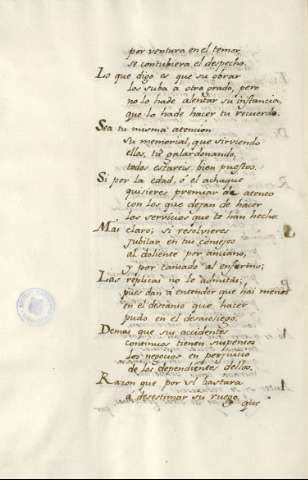 por ventura en el temor
se contubiera el despecho.
Lo que digo es que su obrar
los suba a otro grado, pero
no lo hade alentar su instancia,
que lo hade hacer tu recuerdo.
Sea tu misma atencion
su memorial, que sirviendo
ellos, tu galardonando,
todos estareis bien puestos.
Si por la edad, ó el achaque
quisieres premiar de ateneo
con los que dejan de hacer
los servicios que te han hecho.
Mas claro; si resolvieres
jubilar en tus consejos
al doliente por anciano,
y por cansado al enfermo;
Las replicas no le admitas,
pues dan a entender que hai menos
en el descanso que hacer
pudo en el desasosiego.
Demas que sus accidentes
continuos tienen suspensos
los negocios en perjuicio
de los dependientes dellos.
Razon que por si bastara
a desestimar su ruego, que